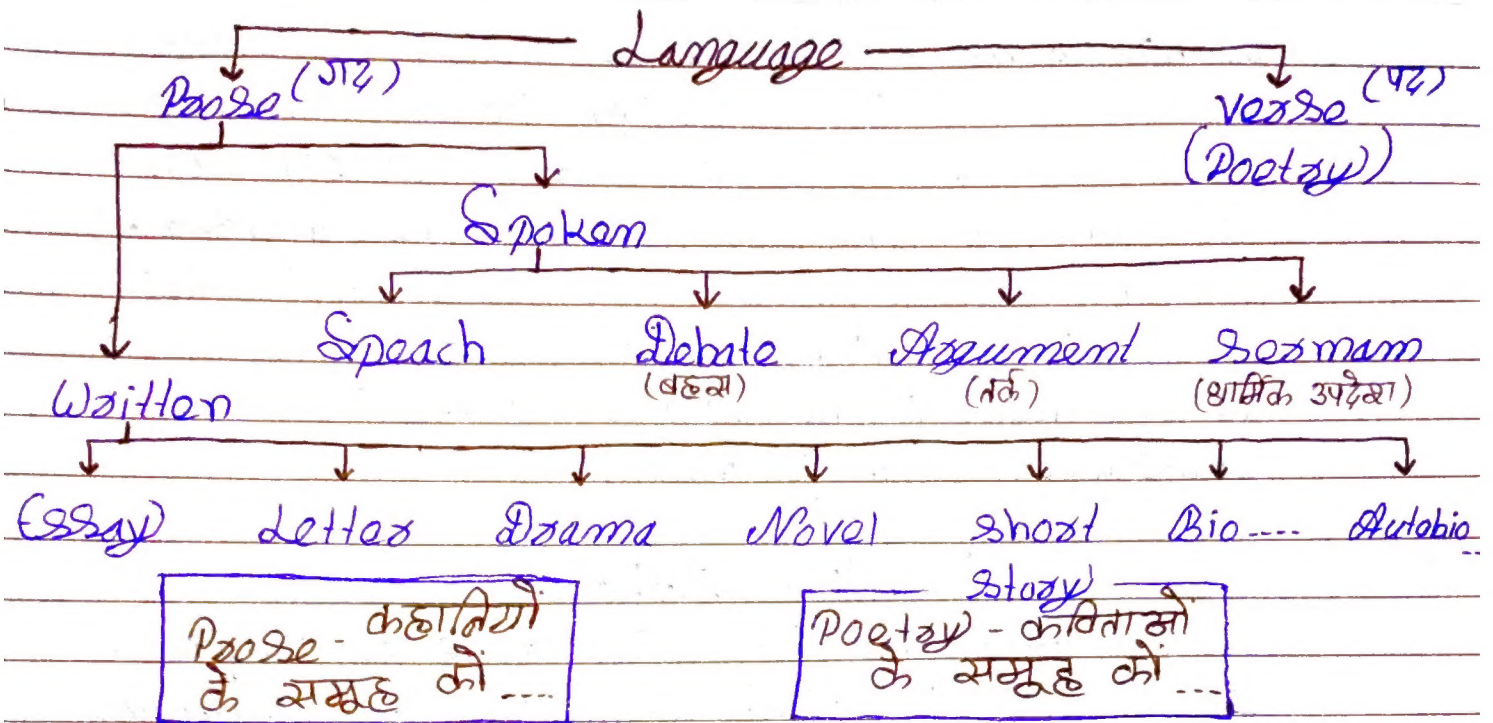 Language
Prose (गद्य) Verse (पद्य)
(Poetry)
Spoken
Speach Debate Argument Sermam
(बहस) (तर्क) (धार्मिक उपदेश)
Written
Essay Letter Drama Novel Short Bio.... Autobio..
Story
Prose - कहानियों
के समूह को ....
Poetry - कविताओं
के समूह को ...